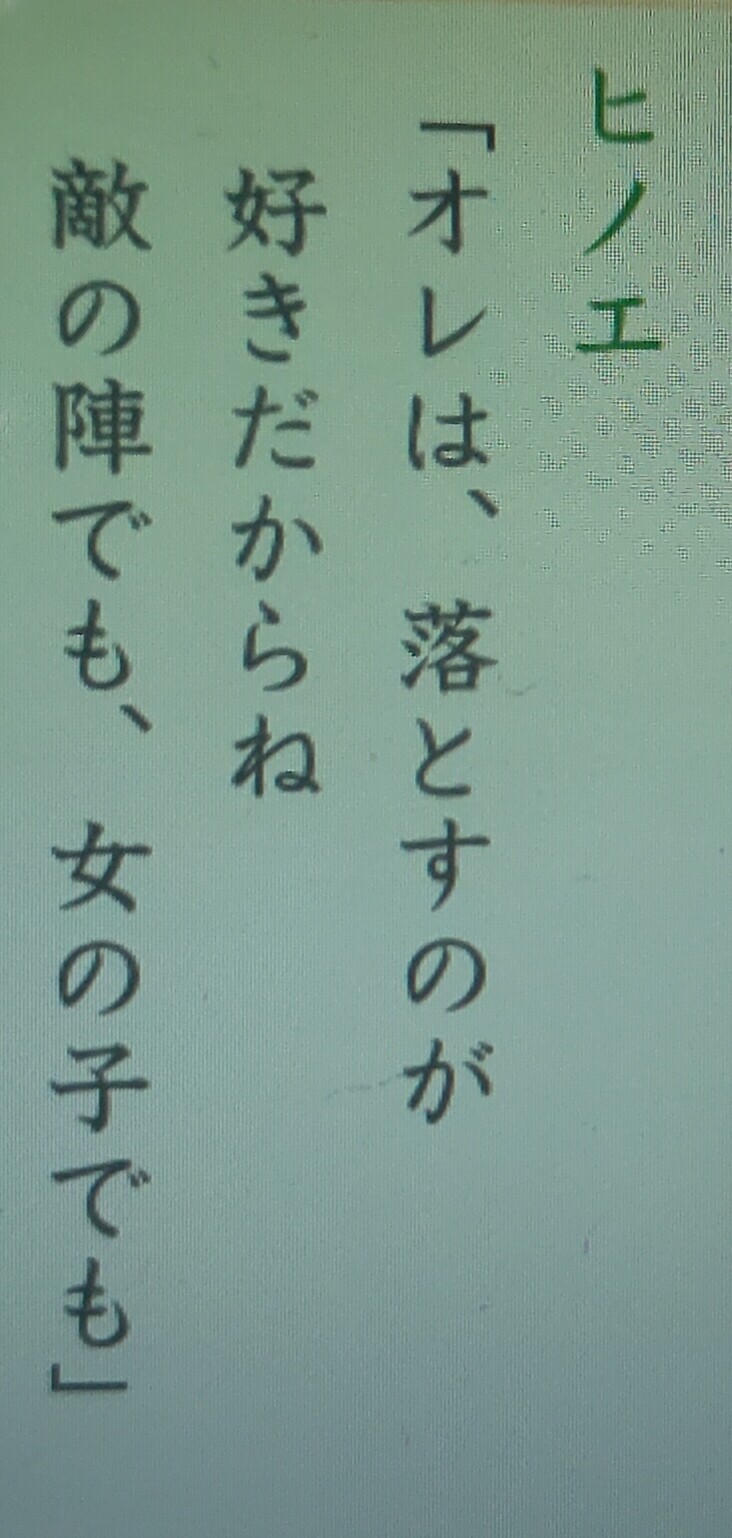 ヒノエ
「オレは、落とすのが
好きだからね
敵の陣でも、女の子でも」